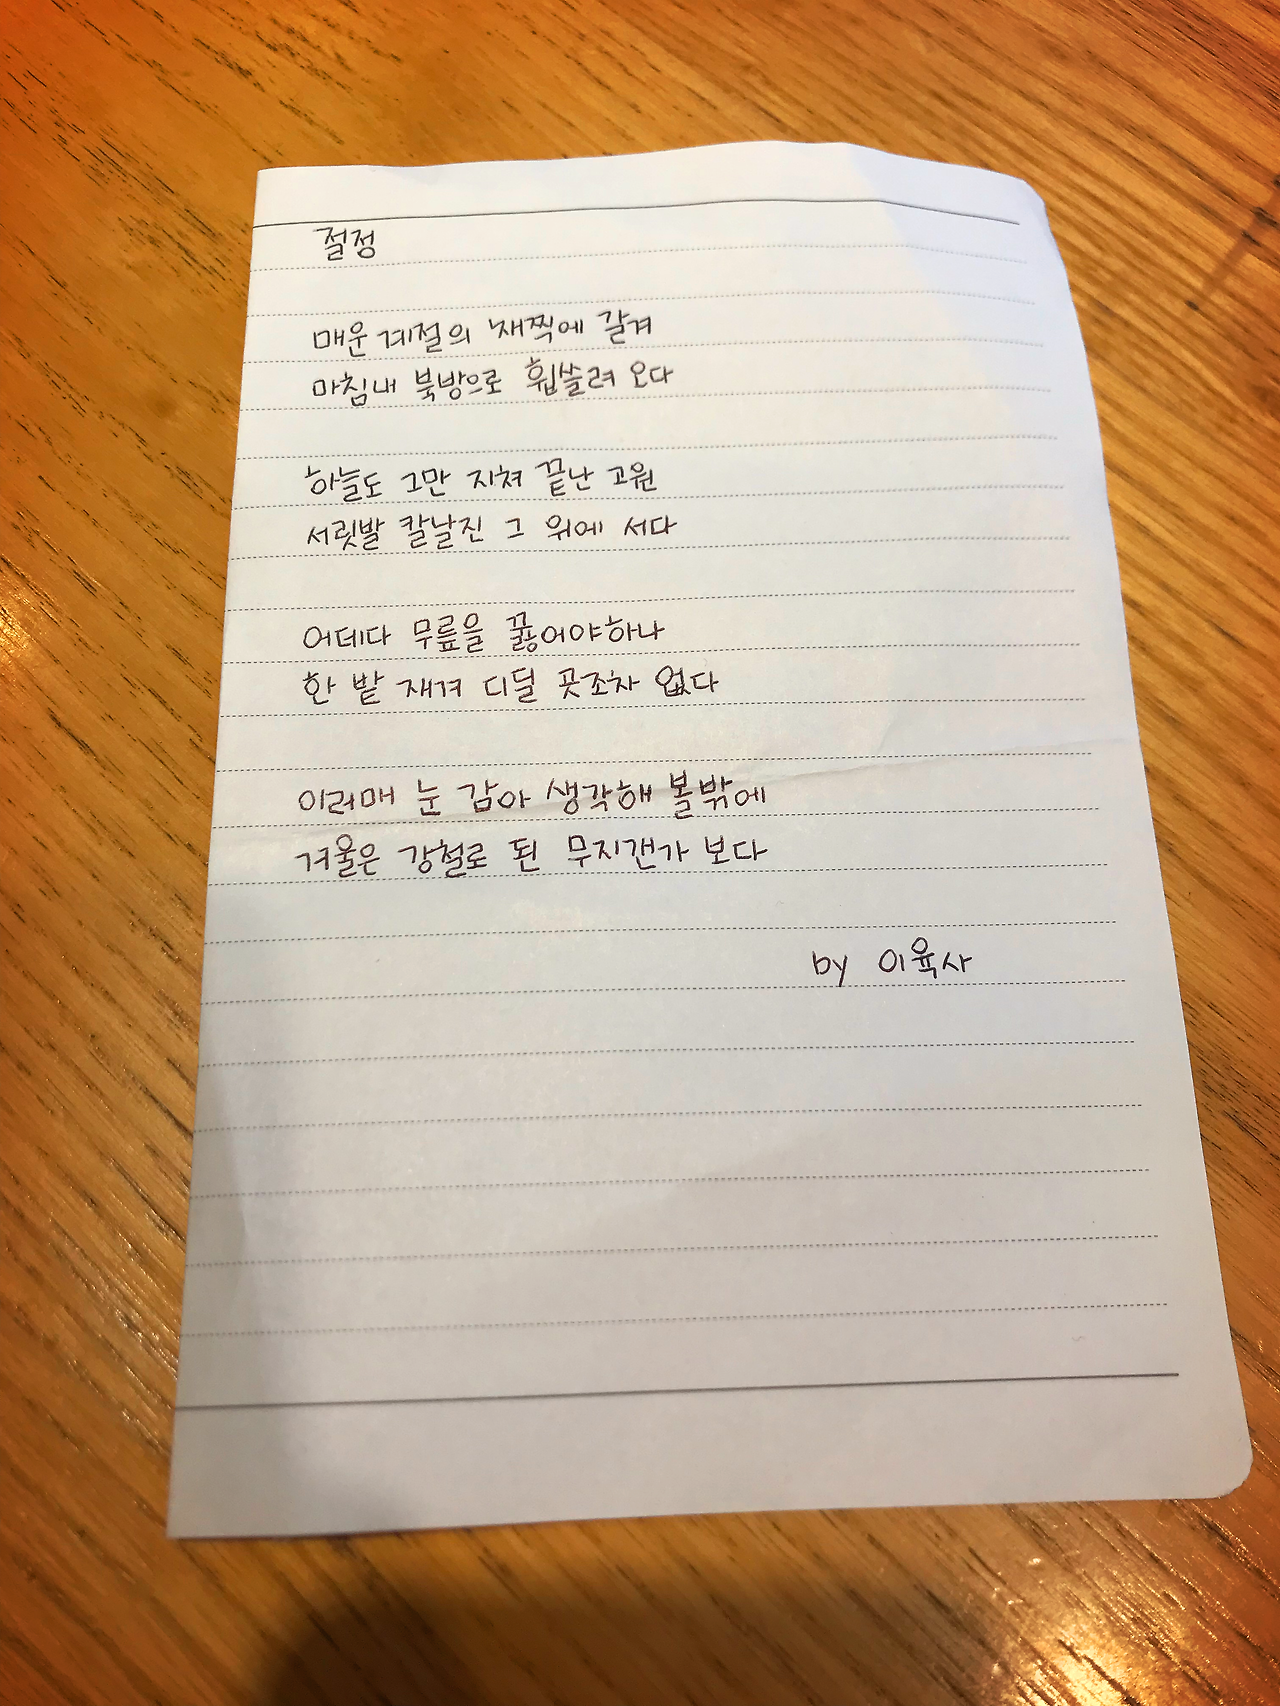 절정
매운 계절의 채찍에 갈겨
마침내 북방으로 휩쓸려 오다
하늘도 그만 지쳐 끝난 고원
서릿발 칼날진 그 위에 서다
어데다 무릎을 꿇어야하나
한 발 재겨 디딜 곳조차 없다
이러매 눈 감아 생각해 볼밖에
겨울은 강철로 된 무지갠가 보다
by 이육사